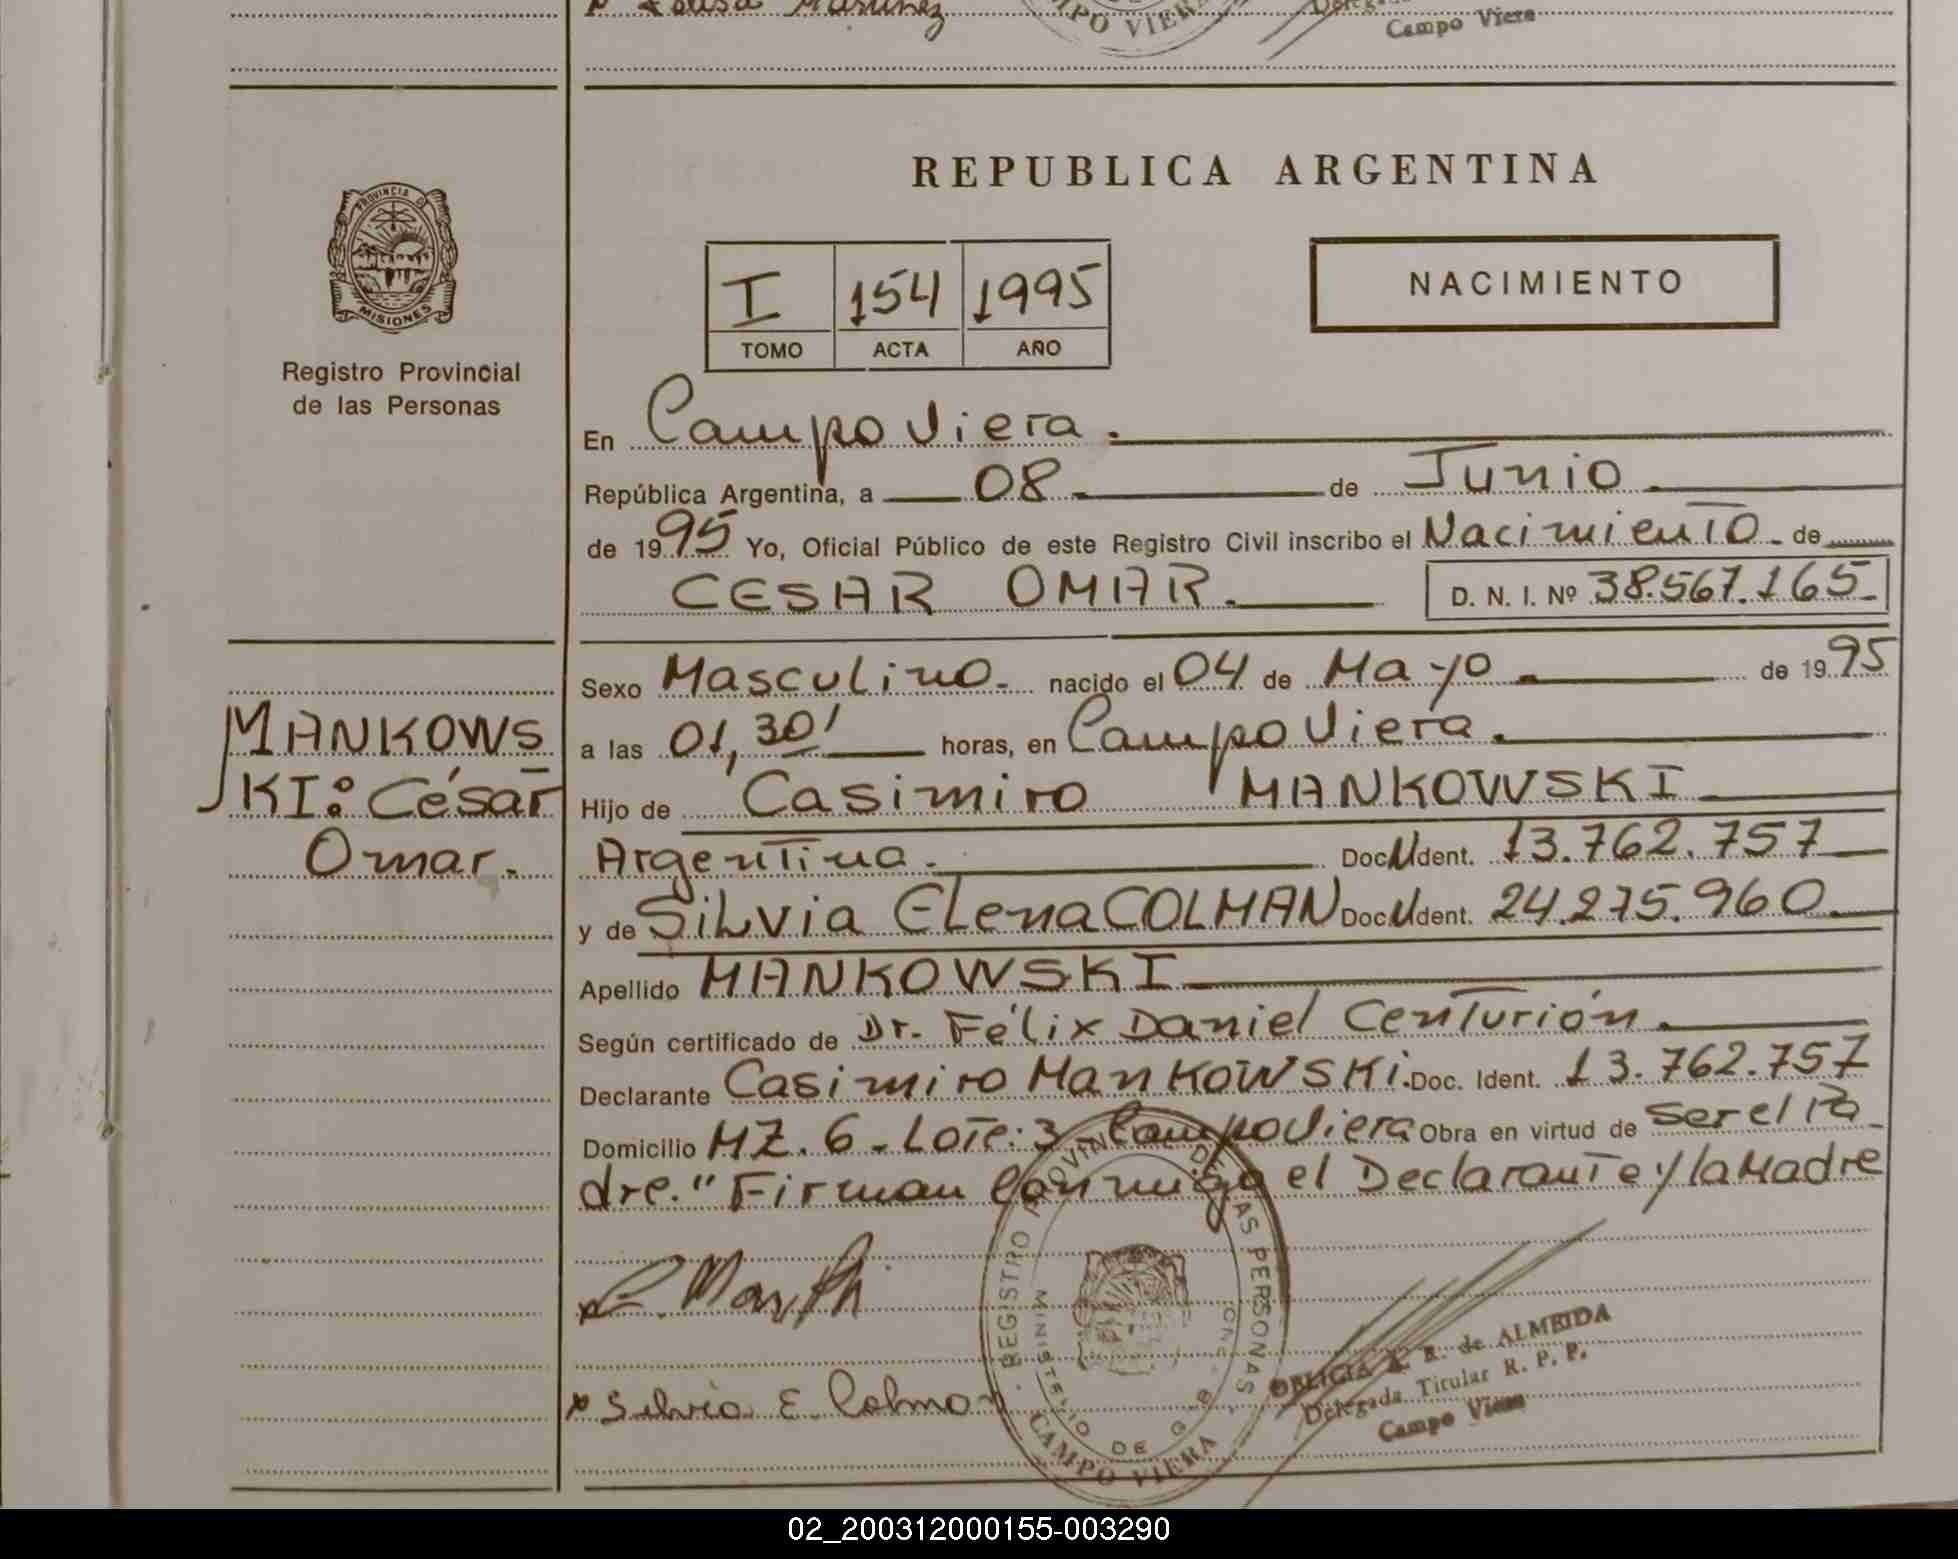 Luisa Martinez
CAMPO VIERA
Campo Viera
PROVINCIA DE
MISIONES
Registro Provincial
de las Personas
REPUBLICA ARGENTINA
I 154 1995
TOMO ACTA AÑO
NACIMIENTO
En Campo Viera.
República Argentina, a 08 de Junio
de 1995 Yo, Oficial Público de este Registro Civil inscribo el Nacimiento de
CESAR OMAR. D. N. I. Nº 38.567.165
Sexo Masculino. nacido el 04 de Mayo de 1995
MANKOWS
a las 01,30' horas, en Campo Viera.
KI: César
Hijo de Casimiro MANKOWSKI
Omar.
Argentina. Doc N Ident. 13.762.757
y de SiLvia ELena COLMAN Doc N Ident. 24.275.960
Apellido MANKOWSKI
Según certificado de Dr. Félix Daniel Centurión.
Declarante Casimiro Mankowski. Doc. Ident. 13.762.757
Domicilio MZ. 6 - Lote: 3 - Campo Viera Obra en virtud de Ser el Pa
dre." Firman Conmigo el Declarante y la Madre
x Silvia E. Colman
REGISTRO PROVINCIAL DE LAS PERSONAS
MINISTERIO DE GOB
CAMPO VIERA
R. de ALMEIDA
Delegada Titular R. P. P.
Campo Viera
02_200312000155-003290